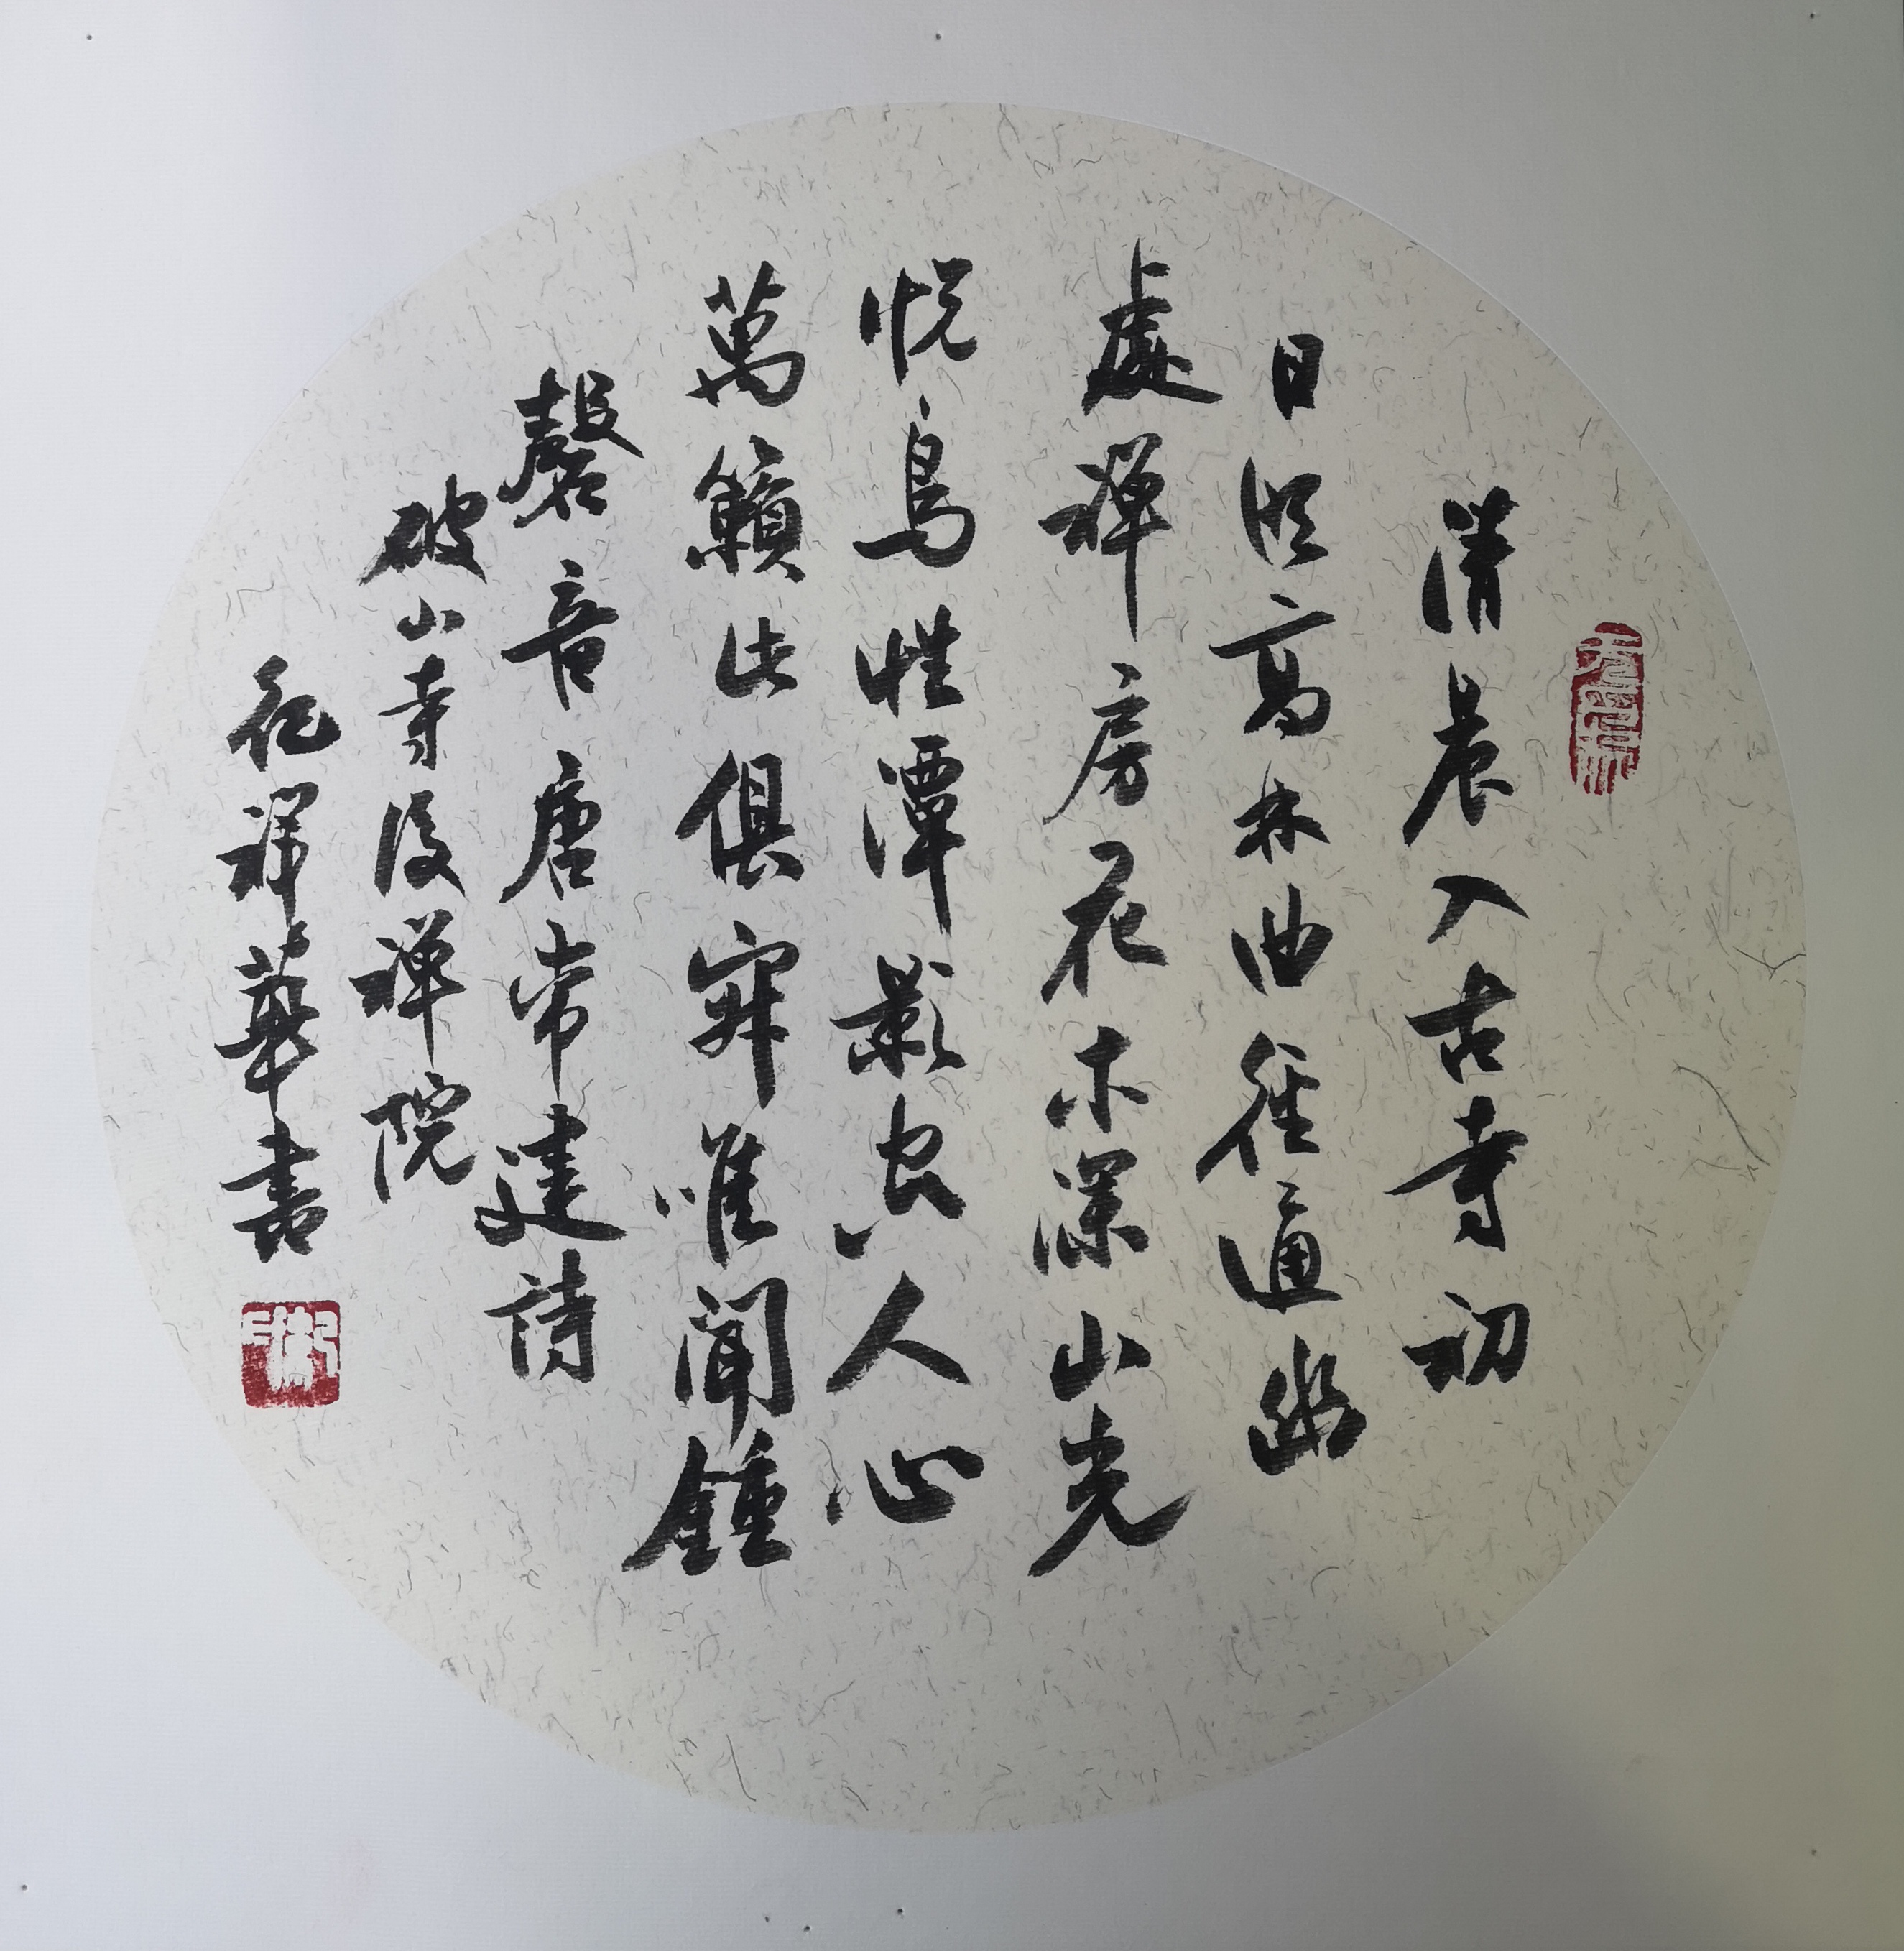 清晨入古寺初
日照高林曲徑通幽
處禪房花木深山光
悅鳥性潭影空人心
萬籟此俱寂唯聞鍾
磬音唐常建詩
破山寺後禪院
祥華書